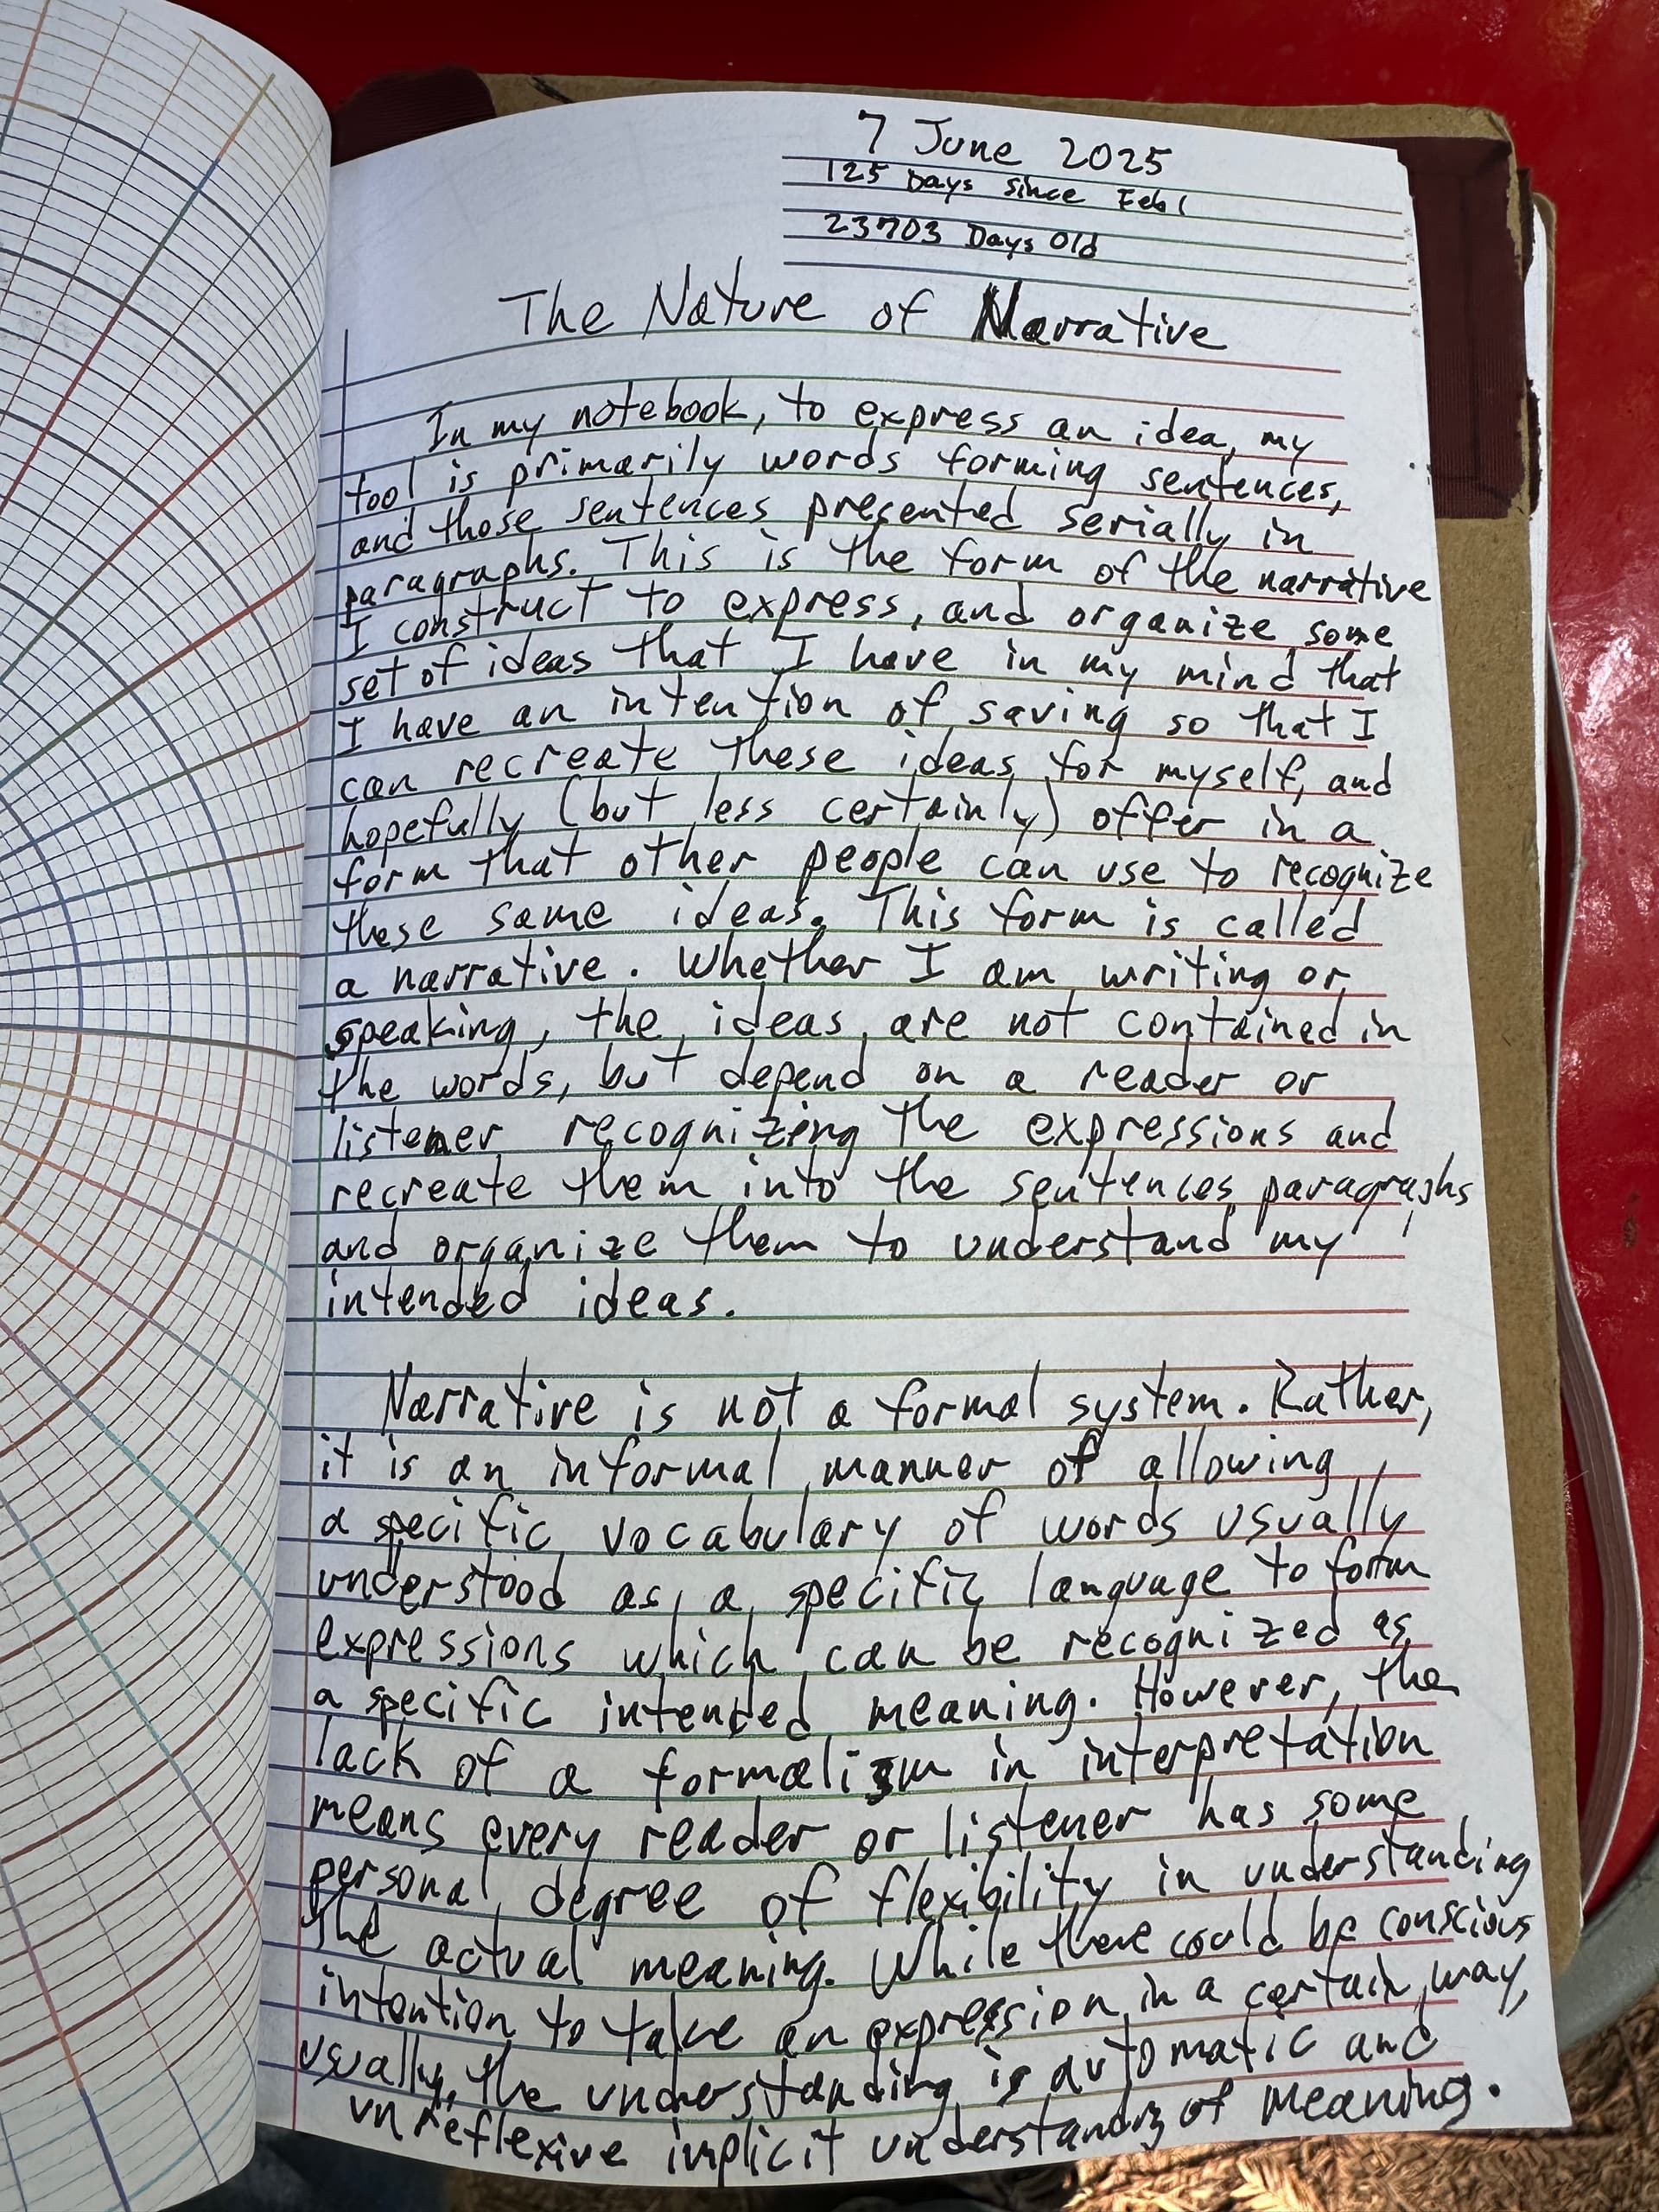 7 June 2025
125 Days since Feb 1
23703 Days Old
The Nature of Narrative
In my notebook, to express an idea, my
tool is primarily words forming sentences,
and those sentences presented serially in
paragraphs. This is the form of the narrative
I construct to express, and organize some
set of ideas that I have in my mind that
I have an intention of saving so that I
can recreate these ideas for myself, and
hopefully (but less certainly) offer in a
form that other people can use to recognize
these same ideas. This form is called
a narrative. Whether I am writing or
speaking, the ideas are not contained in
the words, but depend on a reader or
listener recognizing the expressions and
recreate them into the sentences, paragraphs
and organize them to understand my
intended ideas.
Narrative is not a formal system. Rather,
it is an informal manner of allowing
a specific vocabulary of words usually
understood as a specific language to form
expressions which can be recognized as
a specific intended meaning. However, the
lack of a formalism in interpretation
means every reader or listener has some
personal degree of flexibility in understanding
the actual meaning. While there could be conscious
intention to take an expression in a certain way,
usually, the understanding is automatic and
unreflexive implicit understanding of meaning.